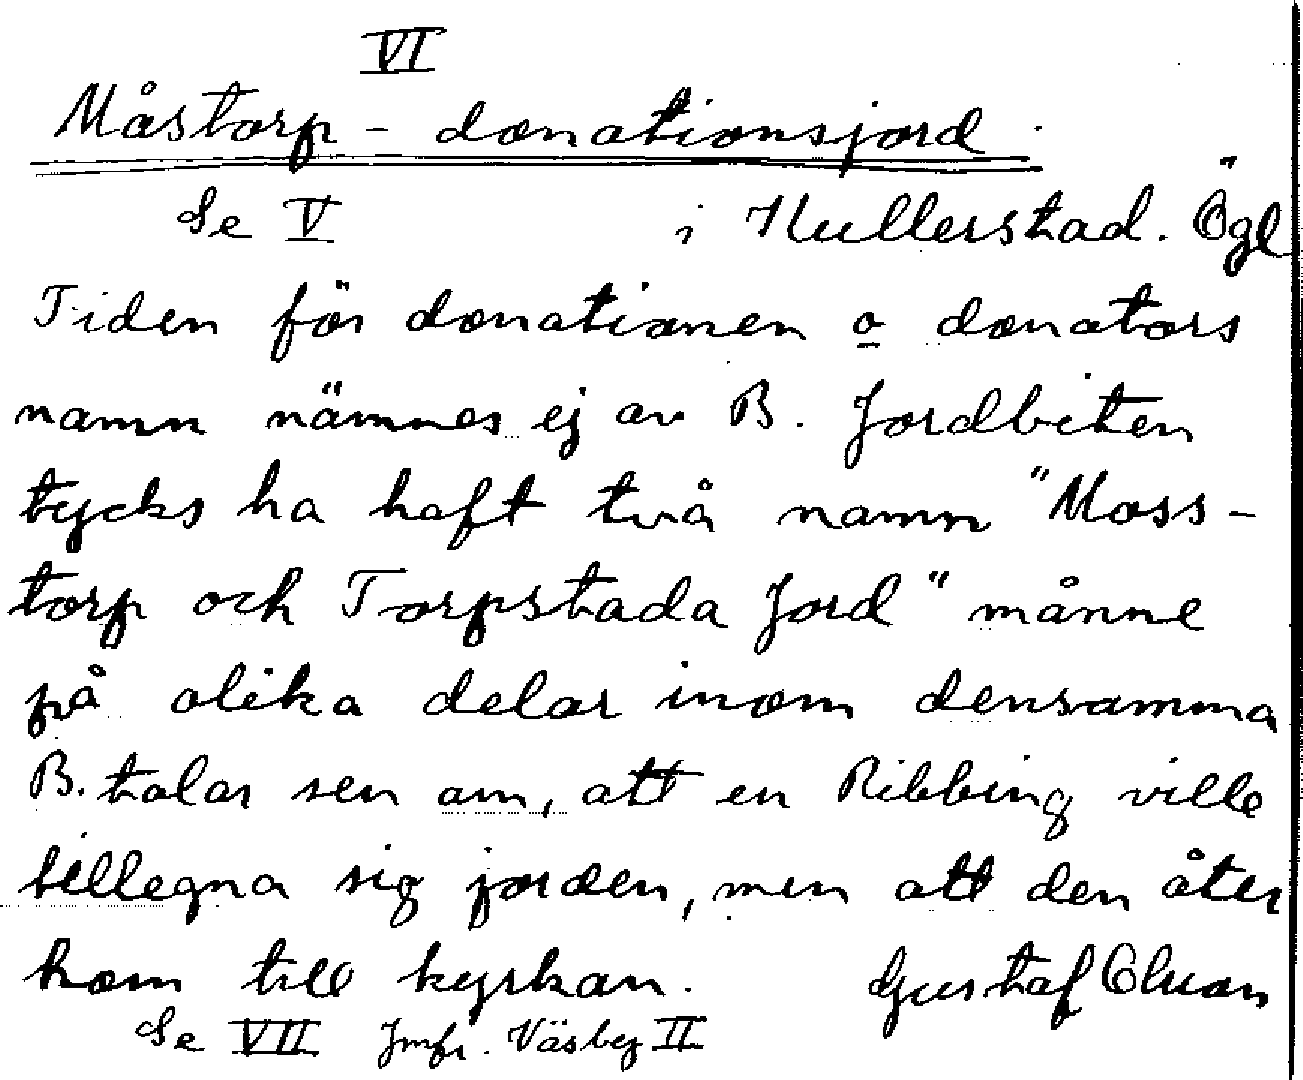 VI
Måstorp - donationsjord
Se V i Kullerstad. Ögl
Tiden för donationen o donators
namn nämnes ej av B. Jordbiten
tycks ha haft två namn "Moss-
torp och Torpstada Jord" månne
på olika delar inom densamma
B. talar sen om, att en Ribbing ville
tillegna sig jorden, men att den åter
kom till kyrkan. Gustaf
Se VII Jmfr. Väsby II